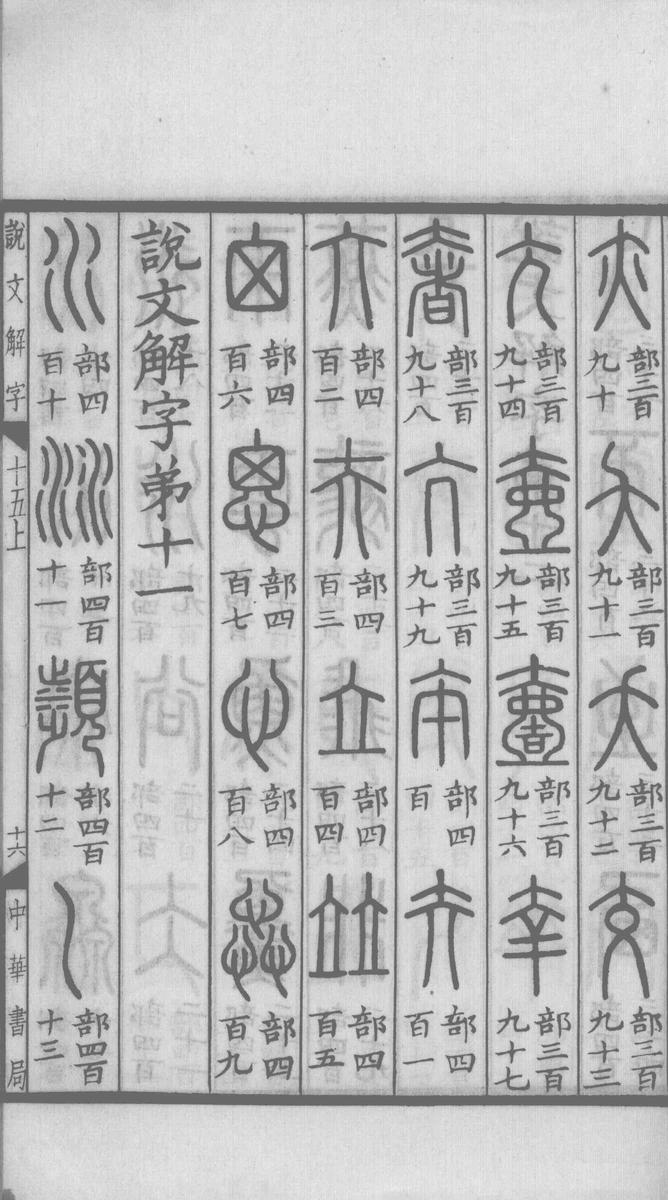 亦部三百九十 夨部三百九十一 夭部三百九十二 交部三百九十三
尣部三百九十四 壺部三百九十五 壹部三百九十六 㚔部三百九十七
奢部三百九十八 亢部三百九十九 夲部四百 夰部四百一
亣部四百二 夫部四百三 立部四百四 竝部四百五
囟部四百六 思部四百七 心部四百八 惢部四百九
說文解字弟十一
水部四百十 沝部四百十一 瀕部四百十二 𡿨部四百十三
說文解字 十五上 十六 中華書局